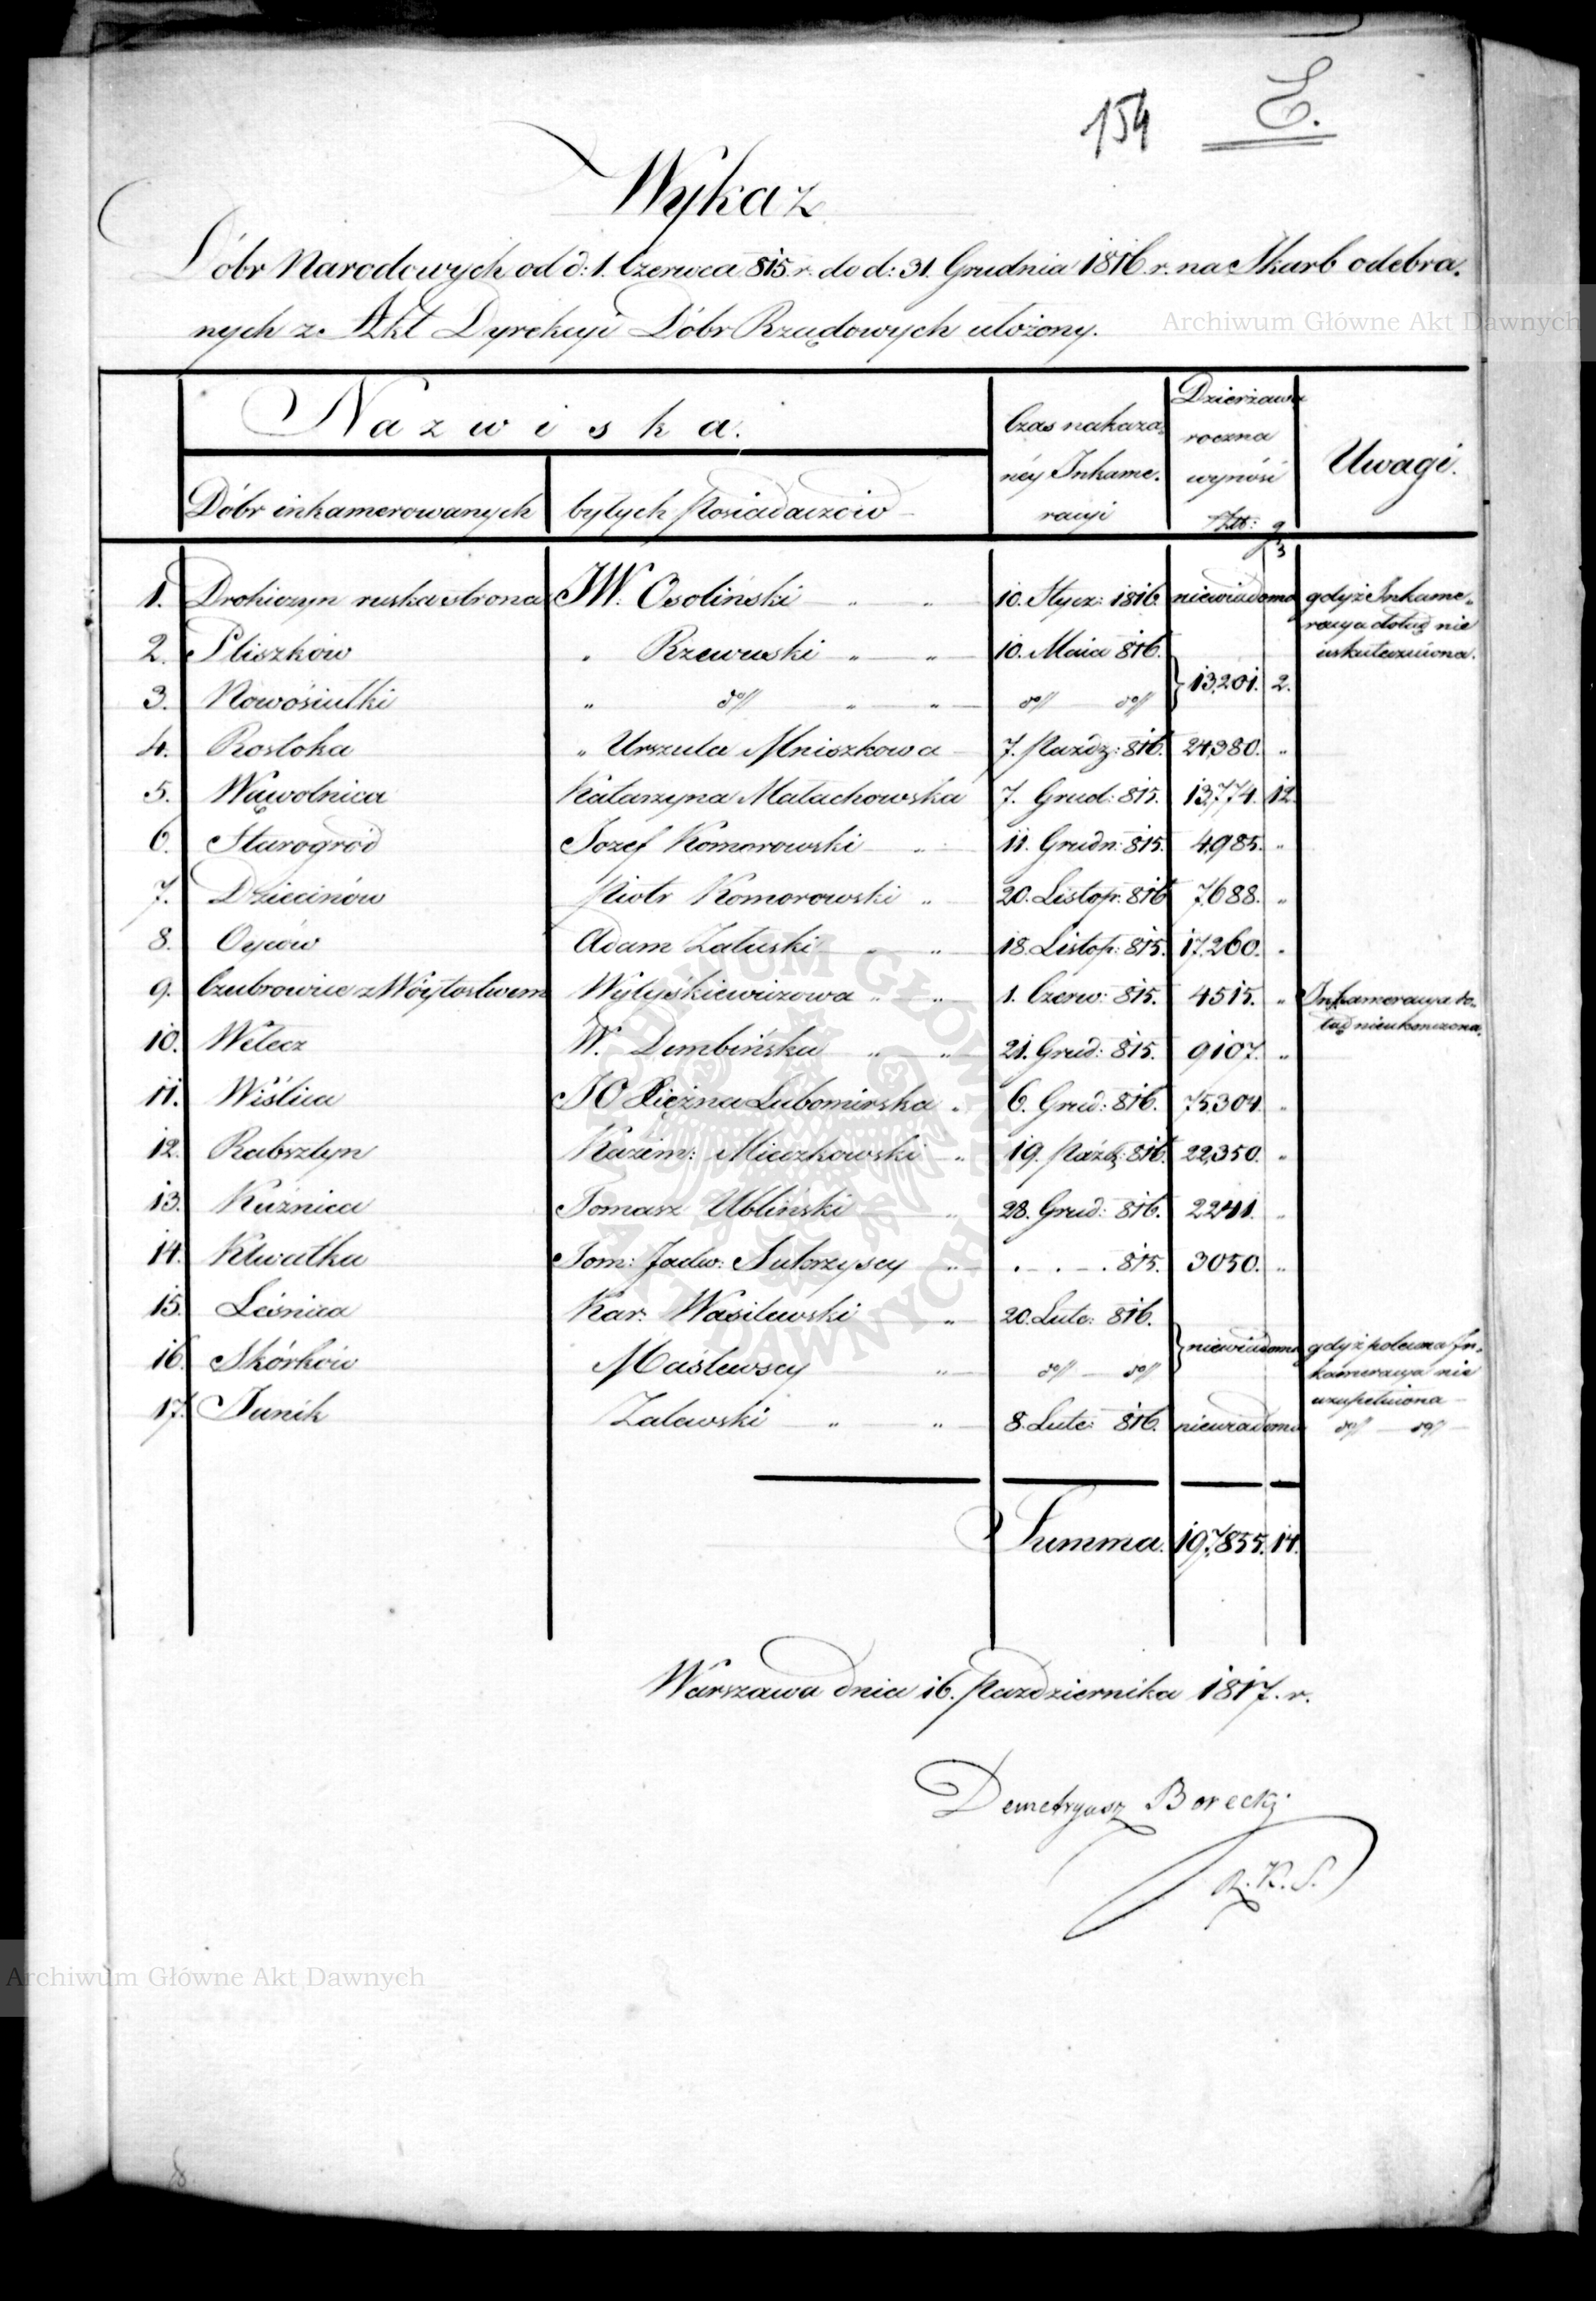 154 E.
Wykaz
Dóbr Narodowych od d: 1. Czerwca 815. r. do d: 31. Grudnia 1816. r. na Skarb odebra-
nych z Akt Dyrekcyi Dóbr Rządowych ułożony.
Nazwiska.
Dóbr inkamerowanych
byłych Posiadaczów
Czas nakaza-
néy Inkame-
racyi
Dzierżawa
roczna
wynosi
Złt: g
Uwagi.
1. Drohiczyn ruska strona JW. Osoliński „ „ 10. Stycz: 1816. niewiadomo gdyż Inkame-
racya dotąd nie
uskuteczniona.
2. Pliszków „ Rzewuski „ „ 10. Maia 816.
} 13,201. 2.
3. Nowosiułki „ do „ „ do do
4. Rostoka „ Urszula Mniszkowa 7. Paźdz: 816. 24,380. „
5. Wąwolnica Katarzyna Małachowska 7. Grud: 815. 13,774. 12.
6. Starogrod Jozef Komorowski „ 11. Grudn: 815. 4,985. „
7. Dziecinów Piotr Komorowski „ 20. Listop: 816 7,688. „
8. Oyców Adam Załuski „ „ 18. Listop: 815. 17,260. „
9. Czubrowice z Wóytostwem „ „ 1. Czerw: 815. 4515. „ Inkameracya do-
tąd nieukończona.
10. Welecz W. Dembińska „ „ 21. Grud: 815. 9107. „
11. Wiślica JO Xiężna Lubomirska „ 6. Grud: 816. 75,304. „
12. Rabsztyn Kazim: Miaczkowski „ 19. Paźdz: 816. 22,350. „
13. Kuźnica Tomasz Ubliński „ 28. Grud: 816. 2241. „
14. Klwatka Tom: Jadw: Sutorzyscy „ . . - . 815. 3050. „
15. Leśnica Kar: Wasilewski „ 20. Lute: 816.
} niewiadomo gdyż polecona In-
kameracya nie
uzupełniona
16. Skórków Maslewscy „ do do
17. Junik Zalewski „ „ 8. Lute: 816. niewiadomo do do
Summa. 197,855. 14.
Warszawa dnia 16. Października 1817. r.
Demetryusz Borecki
R. K. S.
Archiwum Główne Akt Dawnych
Archiwum Główne Akt Dawnych
ARCHIWUM GŁÓWNE AKT DAWNYCH